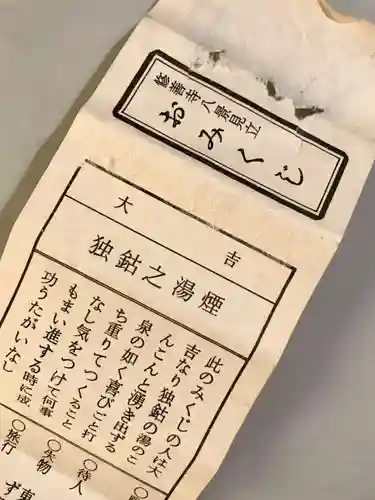 修善寺八景見立
おみくじ
大吉
独鈷之湯煙
此のみくじの人は大
吉なり独鈷の湯のこ
んこんと湧き出ずる
泉の如く喜びごと打
ち重りてつくること
なし気をつけて何事
もまい進する時に成
功うたがいなし
○待人
○失物 東
○旅行 ず